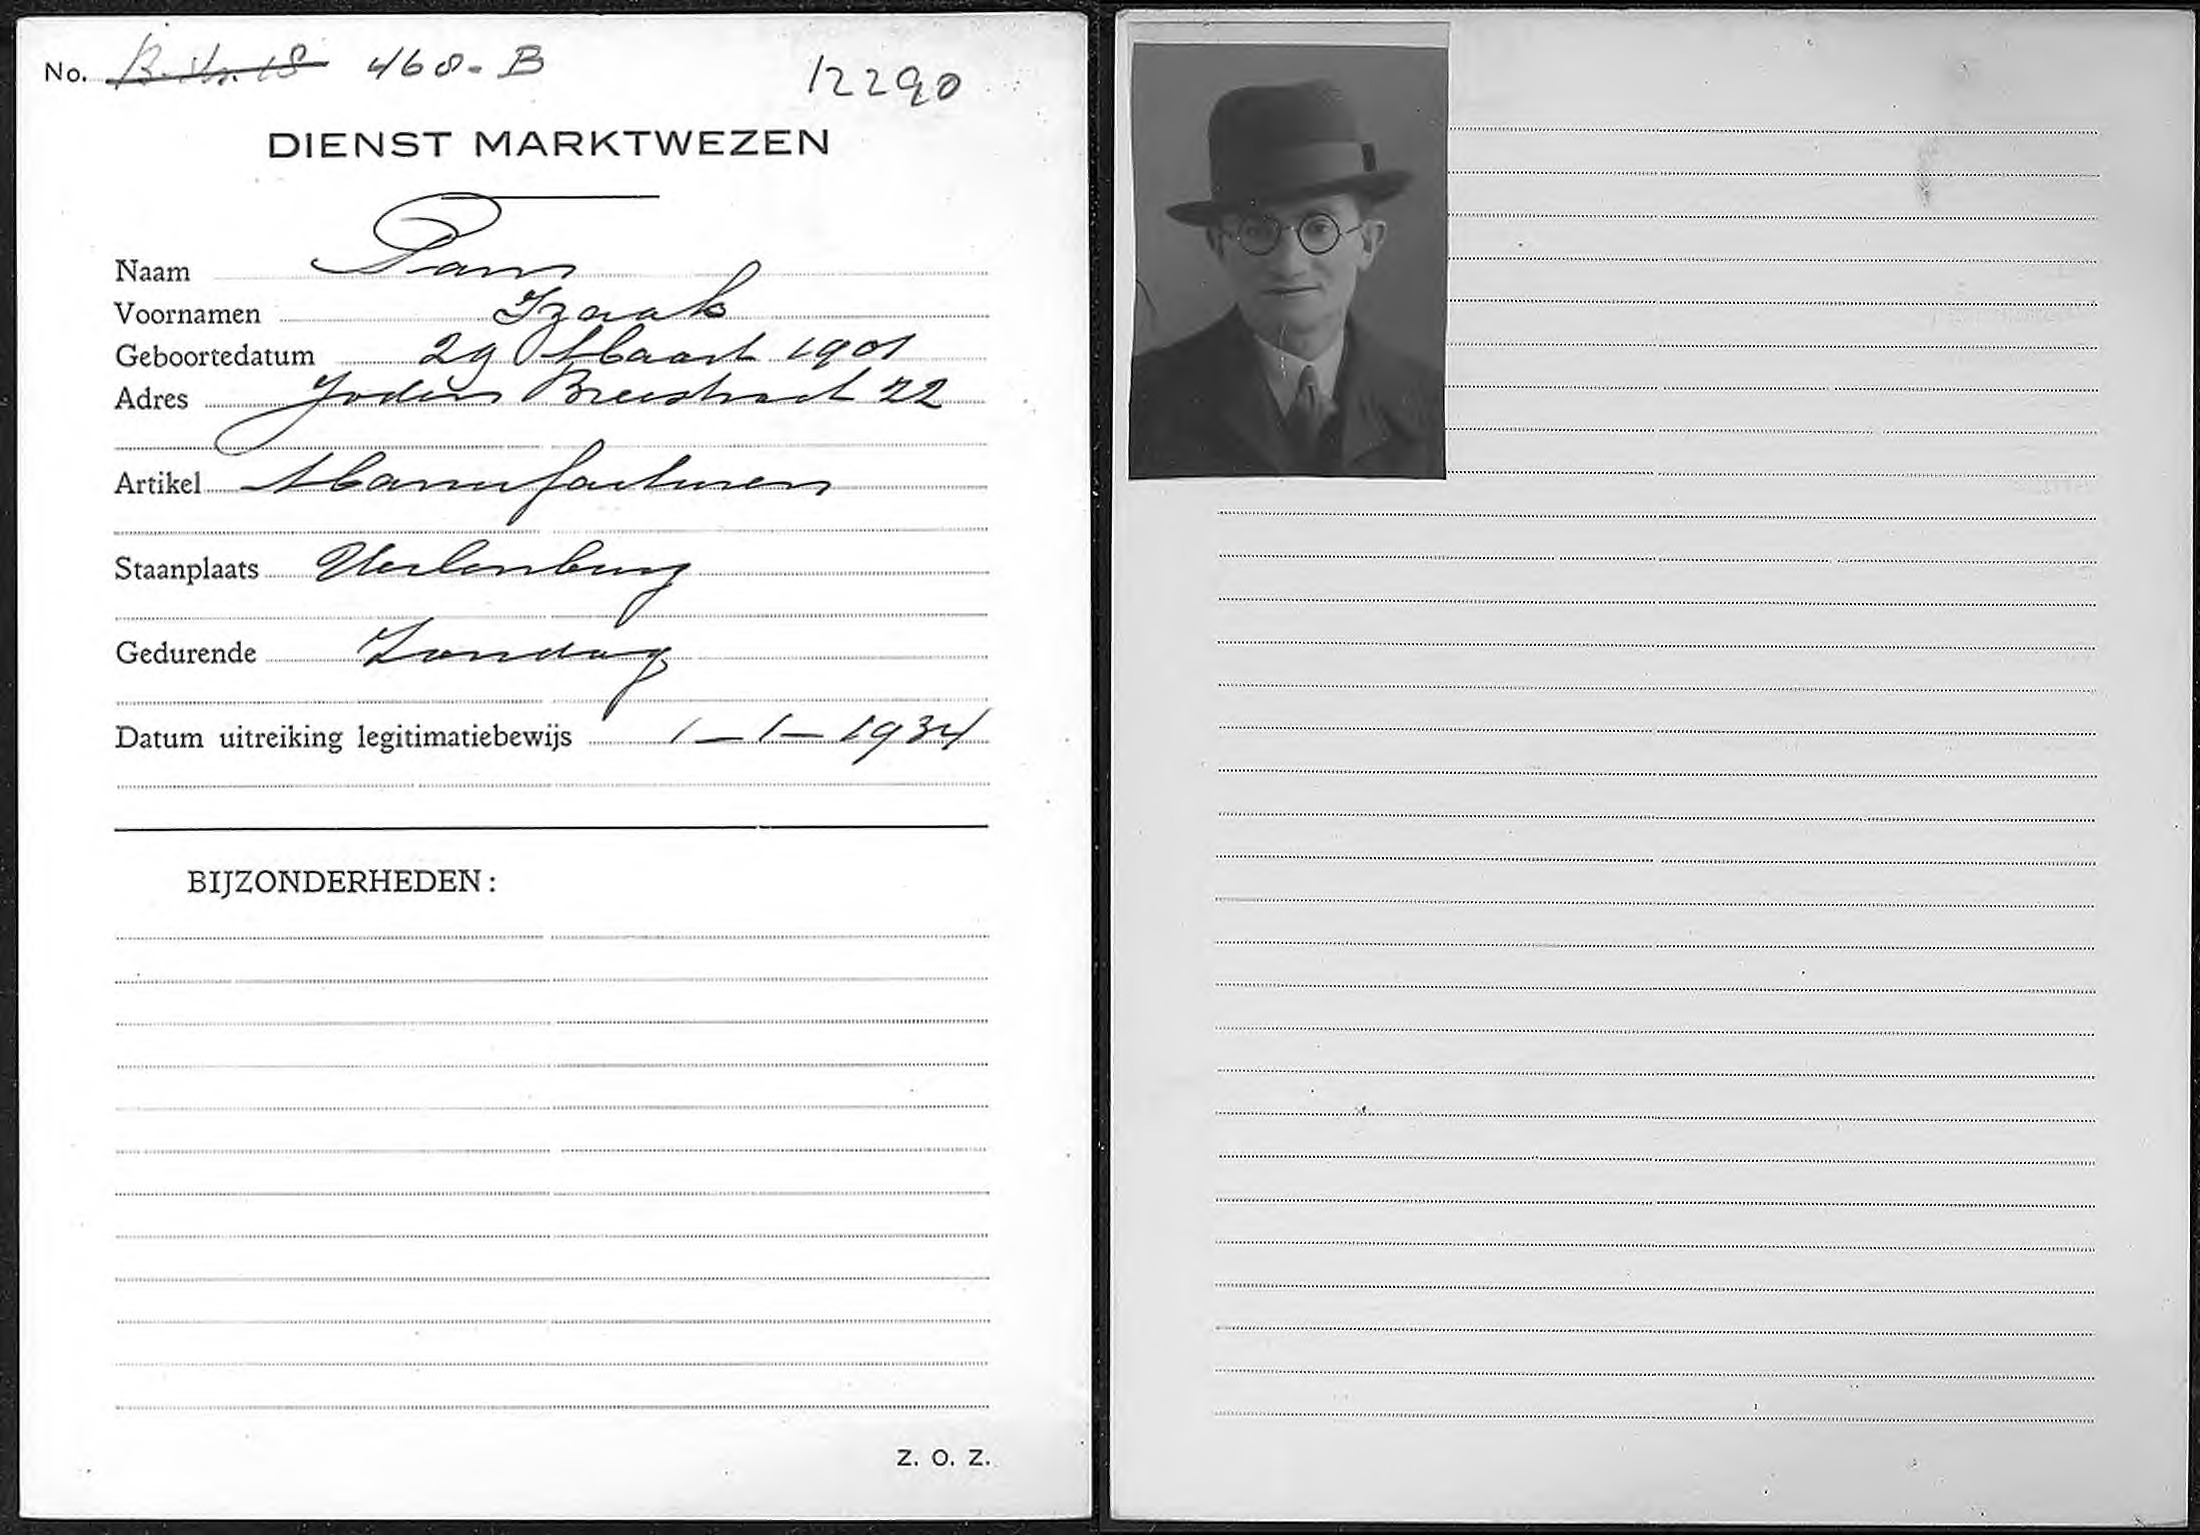 No. 468-B 12290
DIENST MARKTWEZEN
Naam
Voornamen Izaak
Geboortedatum 29 Maart 1901
Adres Joden Breestraat 22
Artikel Manufacturen
Staanplaats Uilenburg
Gedurende Zondag
Datum uitreiking legitimatiebewijs 1-1-1934
BIJZONDERHEDEN:
Z. O. Z.